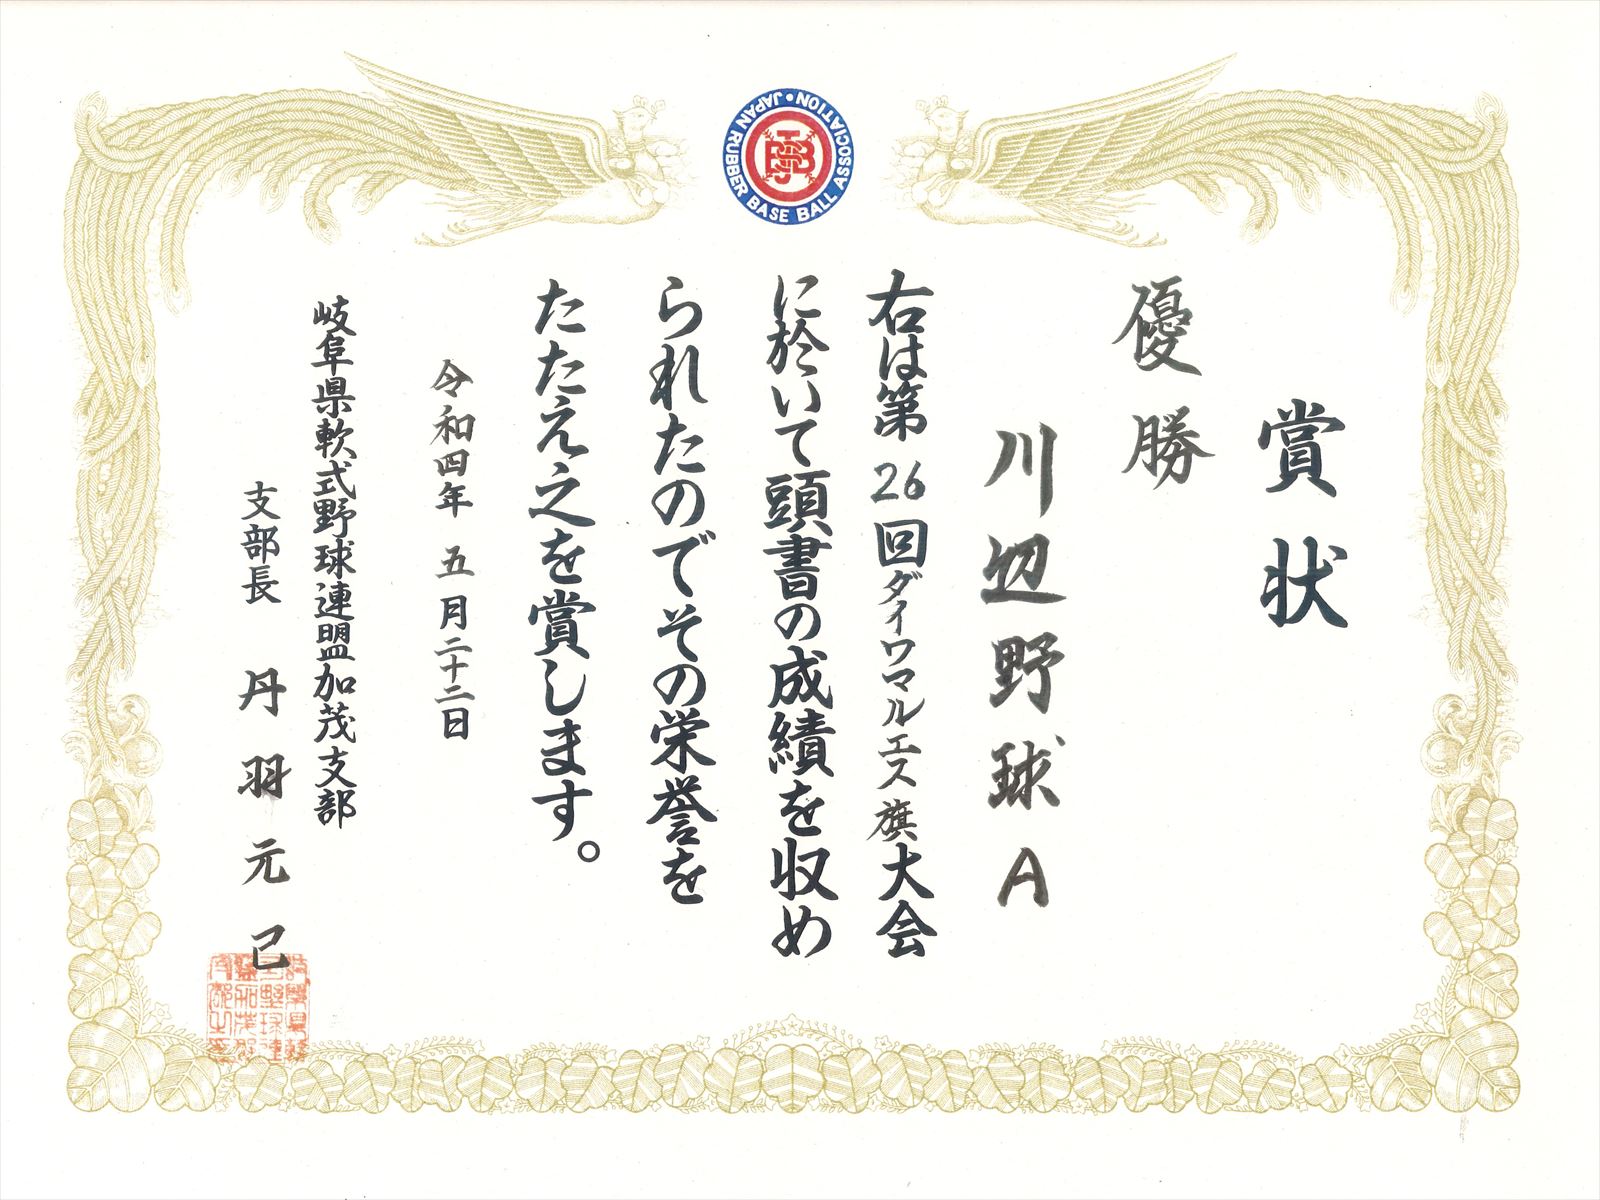 JAPAN RUBBER BASE BALL ASSOCIATION
賞状
優勝
川辺野球A
右は第26回ダイワマルエス旗大会
に於いて頭書の成績を収め
られたのでその栄誉を
たたえ之を賞します。
令和四年 五月二十二日
岐阜県軟式野球連盟加茂支部
支部長 丹羽元己